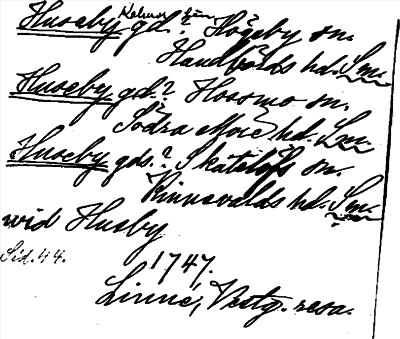 Huseby gd. Kalmar län Högsby sn.
Handbörds hd. Sm.
Huseby gd.? Hossmo sn.
Södra Möre hd. Sm.
Huseby gds.? Skatelöfs sn.
Kinnevalds hd. Sm.
wid Husby
Sid. 44.
1747.
Linné, Vestg. resa.